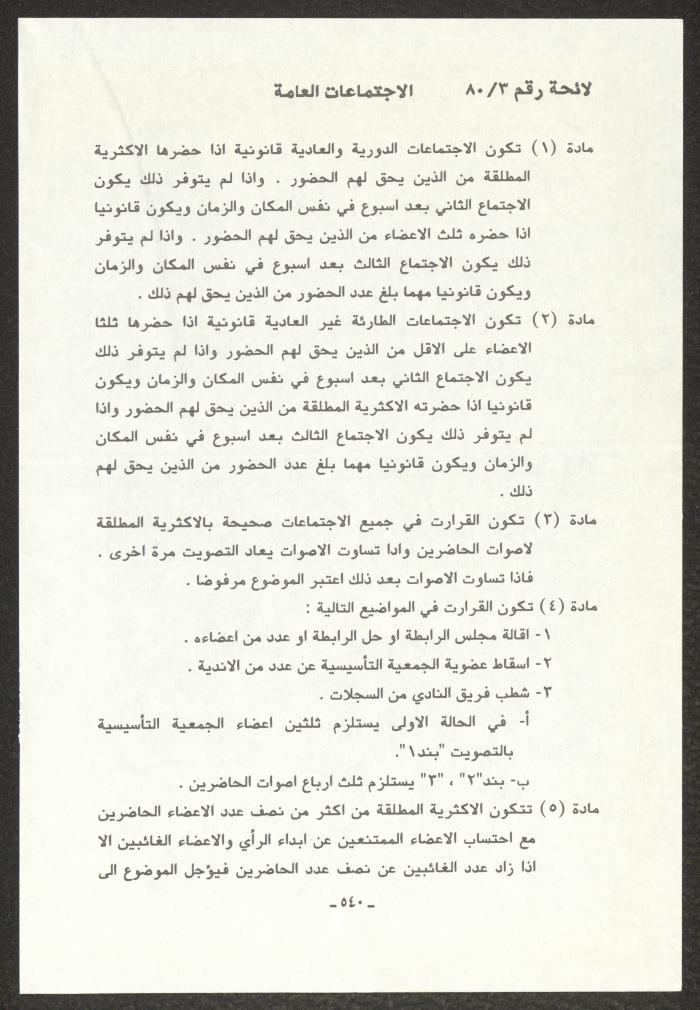 لائحة رقم ٨٠/٣ الاجتماعات العامة
مادة (١) تكون الاجتماعات الدورية والعادية قانونية اذا حضرها الاكثرية
المطلقة من الذين يحق لهم الحضور . واذا لم يتوفر ذلك يكون
الاجتماع الثاني بعد اسبوع في نفس المكان والزمان ويكون قانونيا
اذا حضره ثلث الاعضاء من الذين يحق لهم الحضور . واذا لم يتوفر
ذلك يكون الاجتماع الثالث بعد اسبوع في نفس المكان والزمان
ويكون قانونيا مهما بلغ عدد الحضور من الذين يحق لهم ذلك .
مادة (٢) تكون الاجتماعات الطارئة غير العادية قانونية اذا حضرها ثلثا
الاعضاء على الاقل من الذين يحق لهم الحضور واذا لم يتوفر ذلك
يكون الاجتماع الثاني بعد اسبوع في نفس المكان والزمان ويكون
قانونيا اذا حضرته الاكثرية المطلقة من الذين يحق لهم الحضور واذا
لم يتوفر ذلك يكون الاجتماع الثالث بعد اسبوع في نفس المكان
والزمان ويكون قانونيا مهما بلغ عدد الحضور من الذين يحق لهم
ذلك .
مادة (٣) تكون القرارت في جميع الاجتماعات صحيحة بالاكثرية المطلقة
لاصوات الحاضرين وادا تساوت الاصوات يعاد التصويت مرة اخرى .
فاذا تساوت الاصوات بعد ذلك اعتبر الموضوع مرفوضا .
مادة (٤) تكون القرارت في المواضيع التالية :
١- اقالة مجلس الرابطة او حل الرابطة او عدد من اعضاءه .
٢- اسقاط عضوية الجمعية التأسيسية عن عدد من الاندية .
٣- شطب فريق النادي من السجلات .
أ- في الحالة الاولى يستلزم ثلثين اعضاء الجمعية التأسيسية
بالتصويت "بند١".
ب- بند"٢" ، "٣" يستلزم ثلث ارباع اصوات الحاضرين .
مادة (٥) تتكون الاكثرية المطلقة من اكثر من نصف عدد الاعضاء الحاضرين
مع احتساب الاعضاء الممتنعين عن ابداء الرأي والاعضاء الغائبين الا
اذا زاد عدد الغائبين عن نصف عدد الحاضرين فيؤجل الموضوع الى
ـ ٥٤٠ ـ